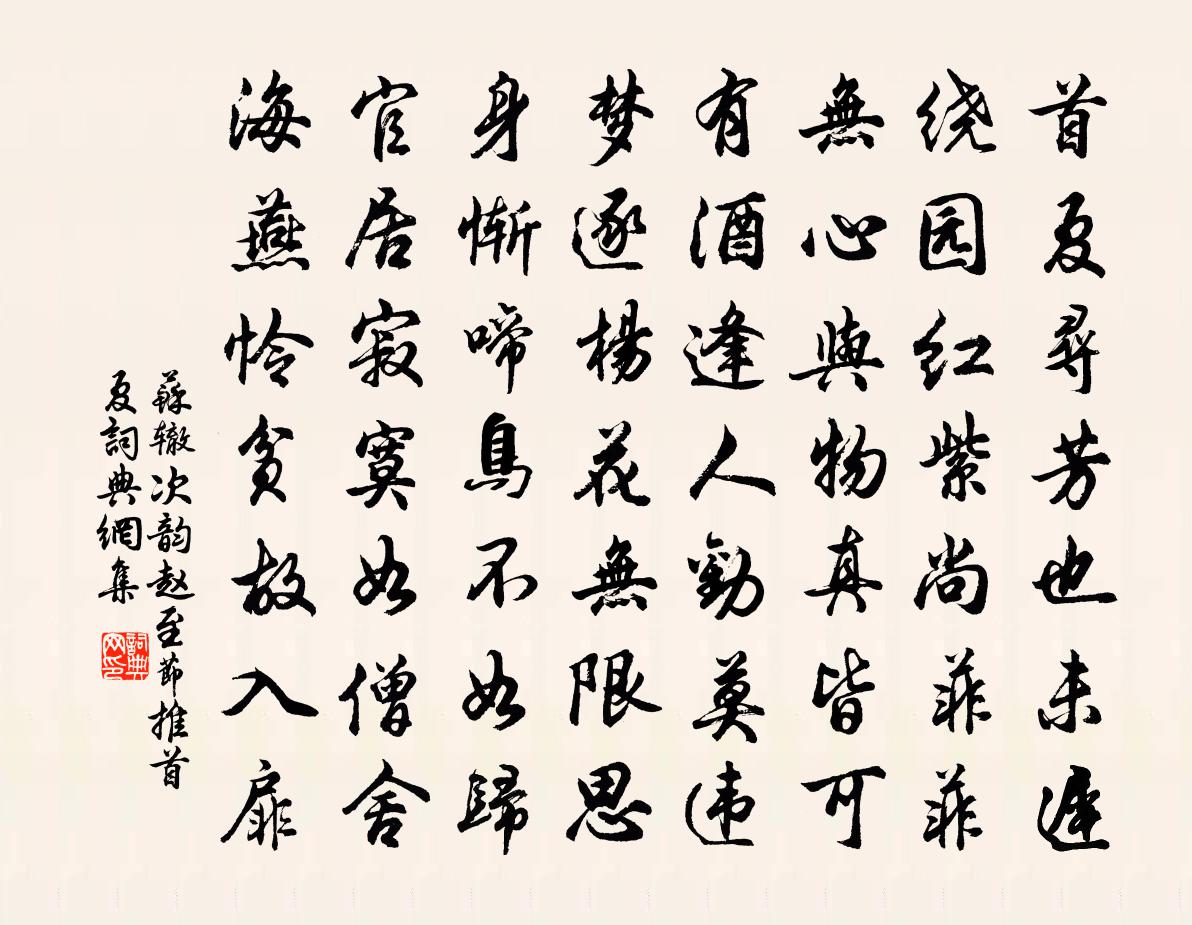 首夏尋芳也未遲
绕园红紫尚菲菲
無心與物真皆可
有酒逢人勸莫违
梦逐楊花無限思
身惭啼鳥不如歸
官居寂寞如僧舍
海燕怜貧故入扉
蘇辙次韵赵至節推首
夏詞典網集
詞典网印